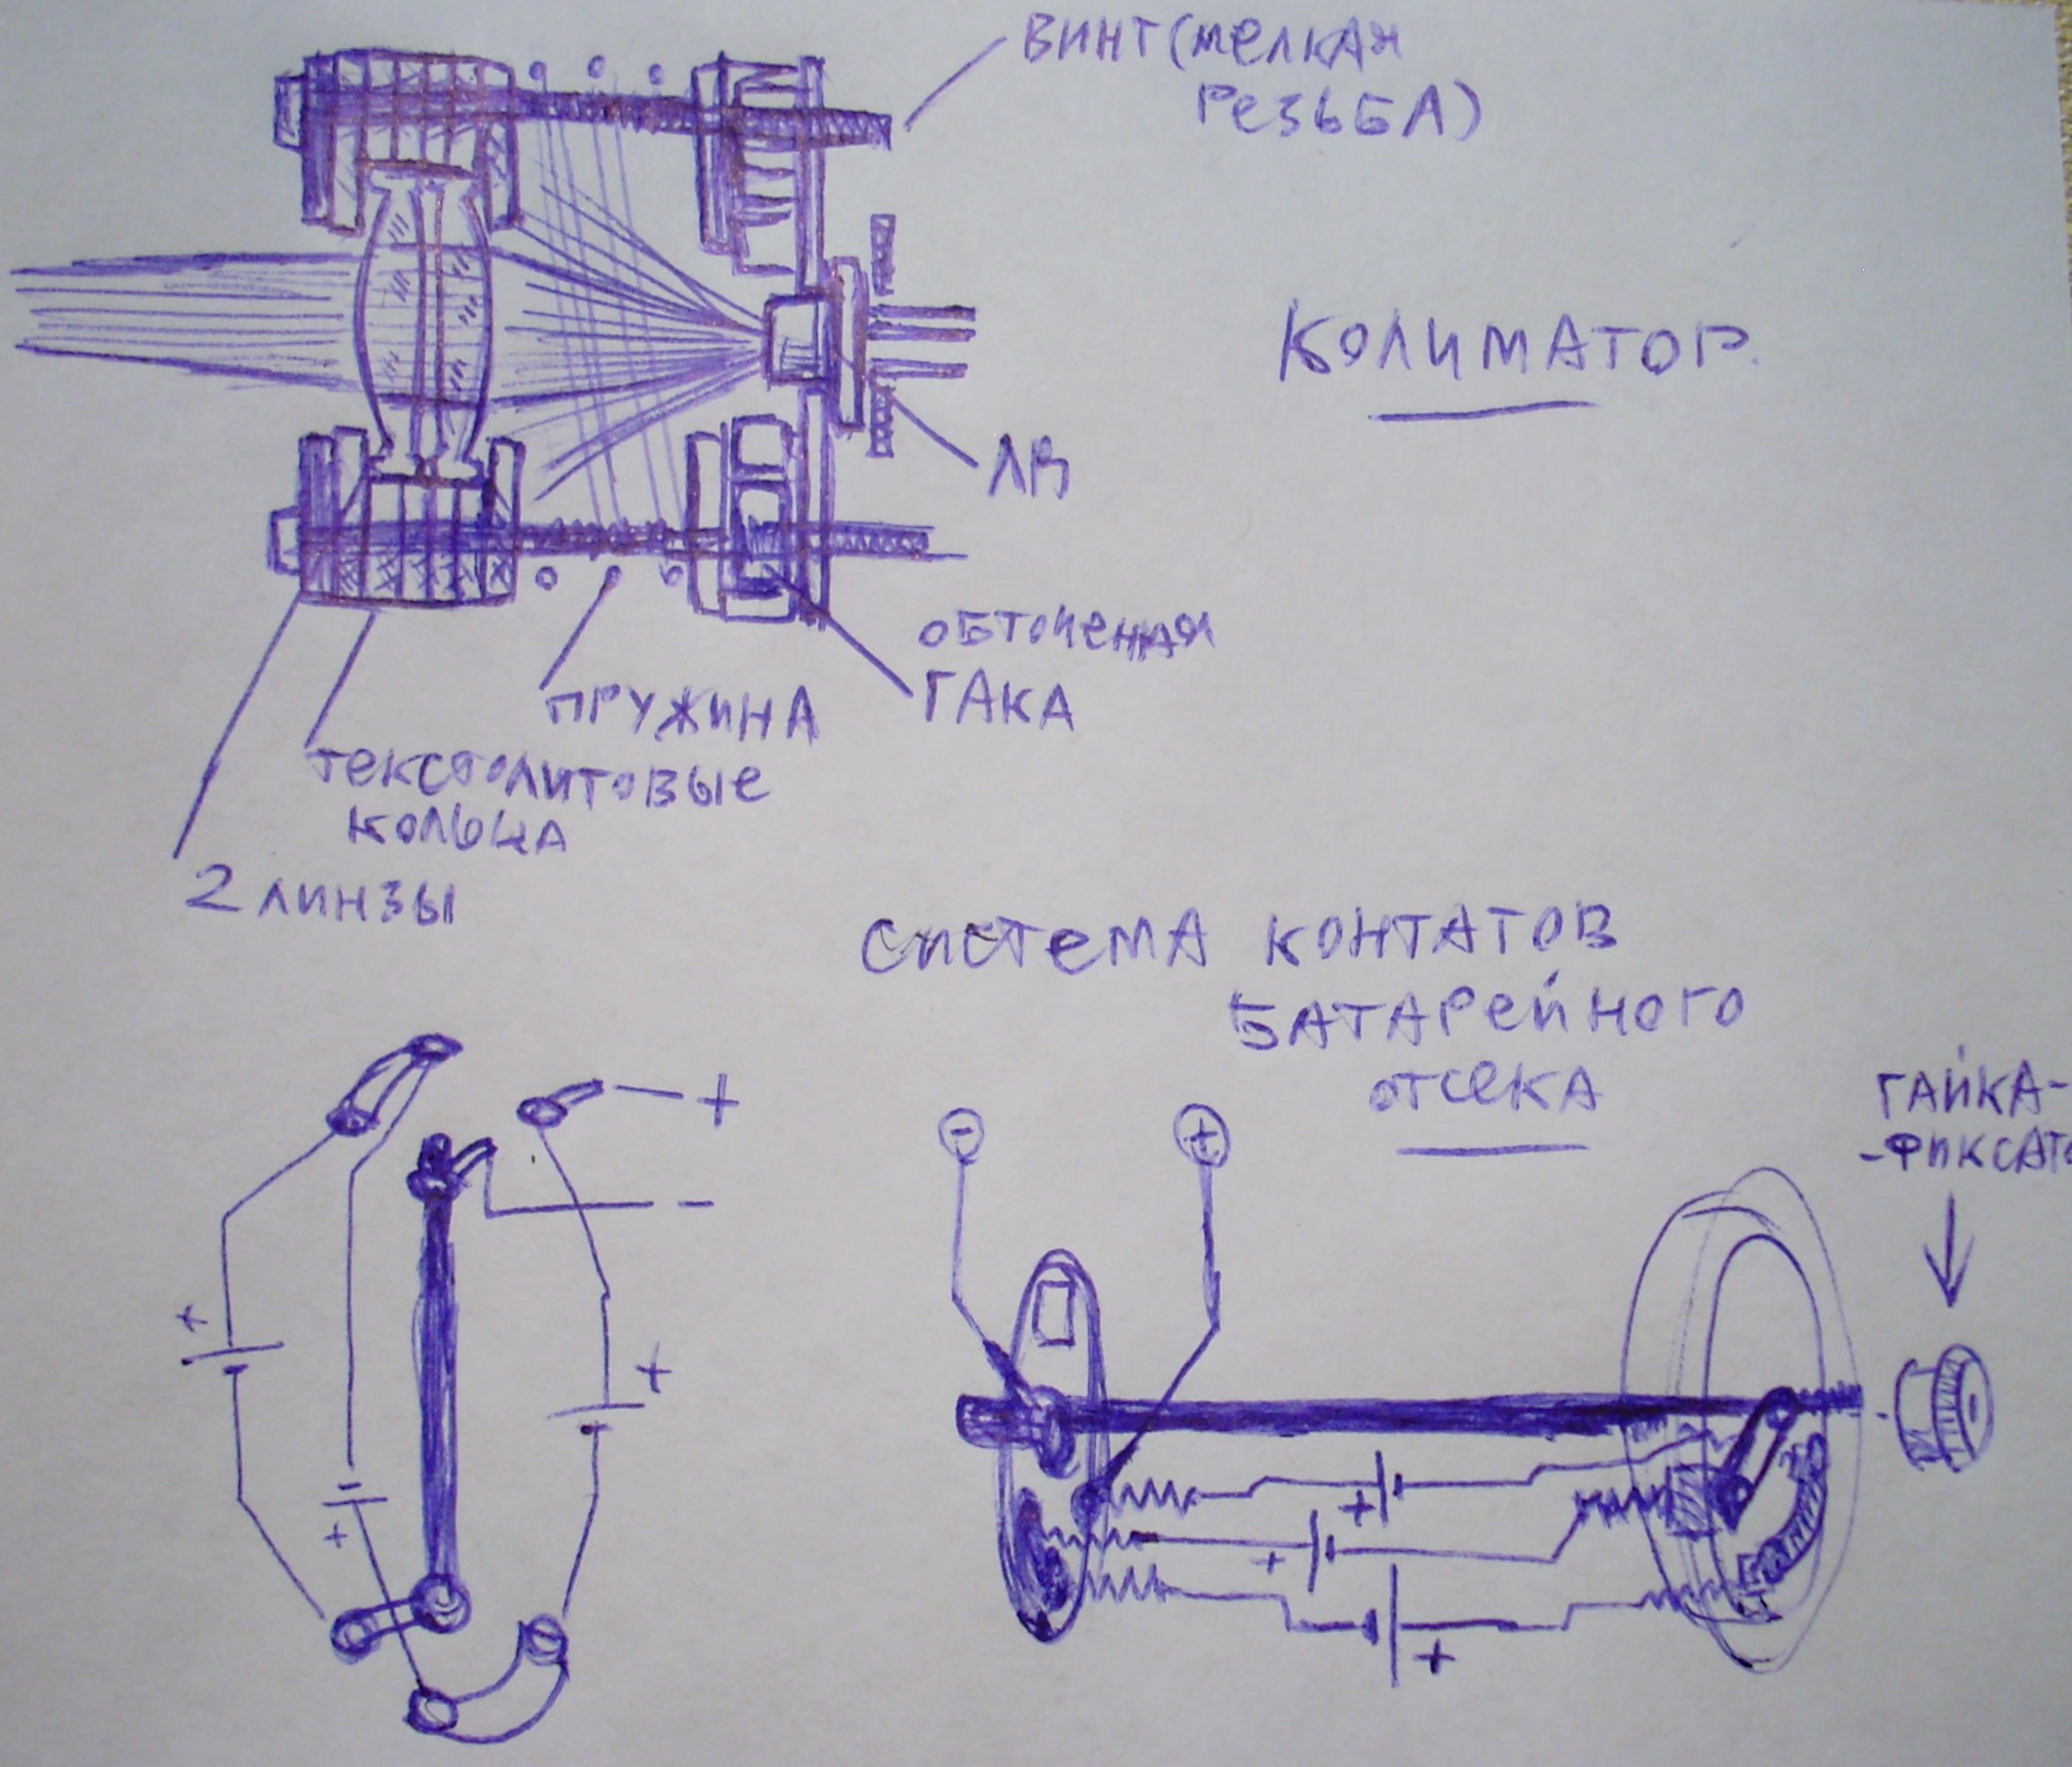 ВИНТ (МЕЛКАЯ
РЕЗЬБА)
КОЛИМАТОР.
ОБТОЧЕНАЯ
ГАКА
ПРУЖИНА
ТЕКСТОЛИТОВЫЕ
КОЛЬЦА
2 ЛИНЗЫ
СИСТЕМА КОНТАТОВ
БАТАРЕЙНОГО
ОТСЕКА
ГАЙКА-
-ФИКСАТО
+
-
+
+
+
-
+
+
+
+